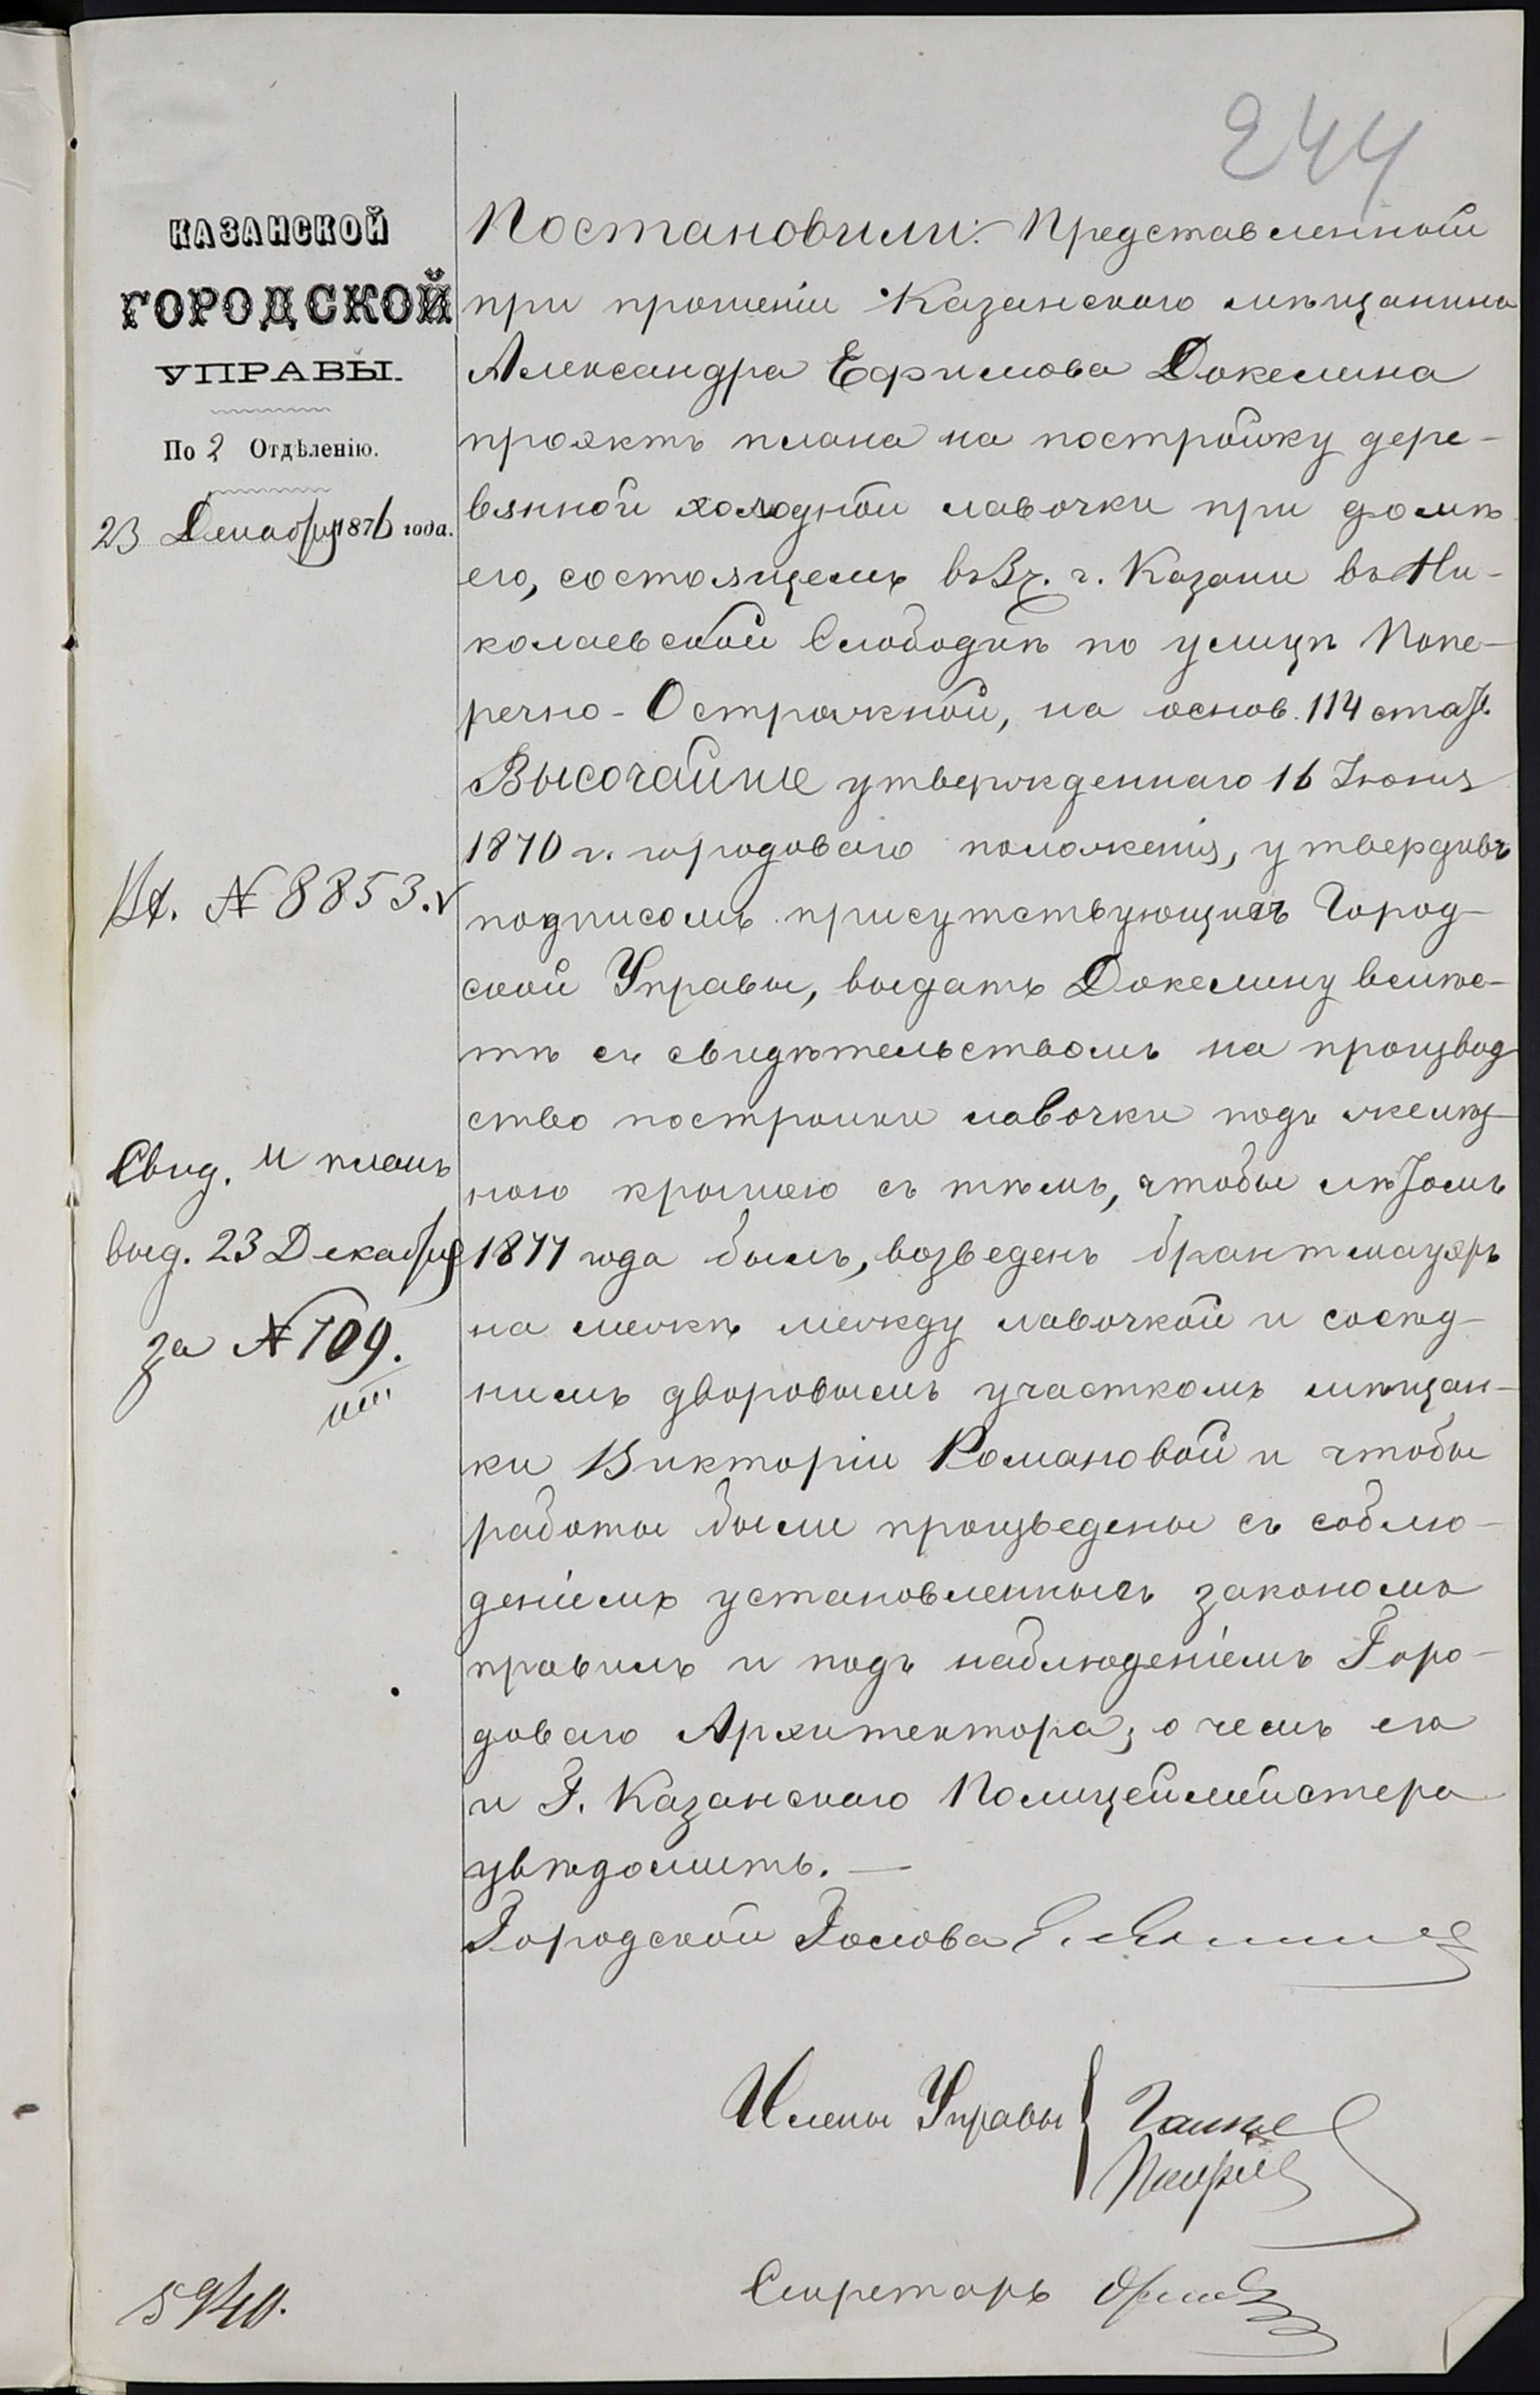 244
КАЗАНСКОЙ
ГОРОДСКОЙ
УПРАВЫ.
По 2 Отдѣленію.
23 Декабря 1876 года.
Вх. № 8853.
Свид. и планъ
выд. 23 Декабря
за № 109.
Постановили: Представленной
при прошеніи Казанскаго мѣщанина
Александра Ефимова Докелина
проэктъ плана на постройку дере-
вянной холодной лавочки при домѣ
его, состоящемъ въ 3 ч. г. Казани въ Ни-
колаевской Слободѣ по улицѣ Попе-
речно-Острожной, на основ. 114 стат.
Высочайше утвержденнаго 16 Іюня
1870 г. городоваго положенія, утвердивъ
подписомъ присутствующихъ Город-
ской Управы, выдать Докелину вмѣс-
тѣ съ свидѣтельствомъ на производ
ство постройки лавочки подъ желѣз-
ною крышею съ тѣмъ, чтобы лѣтомъ
1877 года былъ, возведенъ брантмауэръ
на межѣ между лавочкой и сосѣд-
нимъ дворовымъ участкомъ мѣщан-
ки Викторіи Романовой и чтобы
работы были произведены съ соблю-
деніемъ установленныхъ закономъ
правилъ и подъ наблюденіемъ Горо-
доваго Архитектора; о чемъ его
и Г. Казанскаго Полицеймейстера
увѣдомить. —
Городской Голова
Члены Управы
Секретарь
5940.